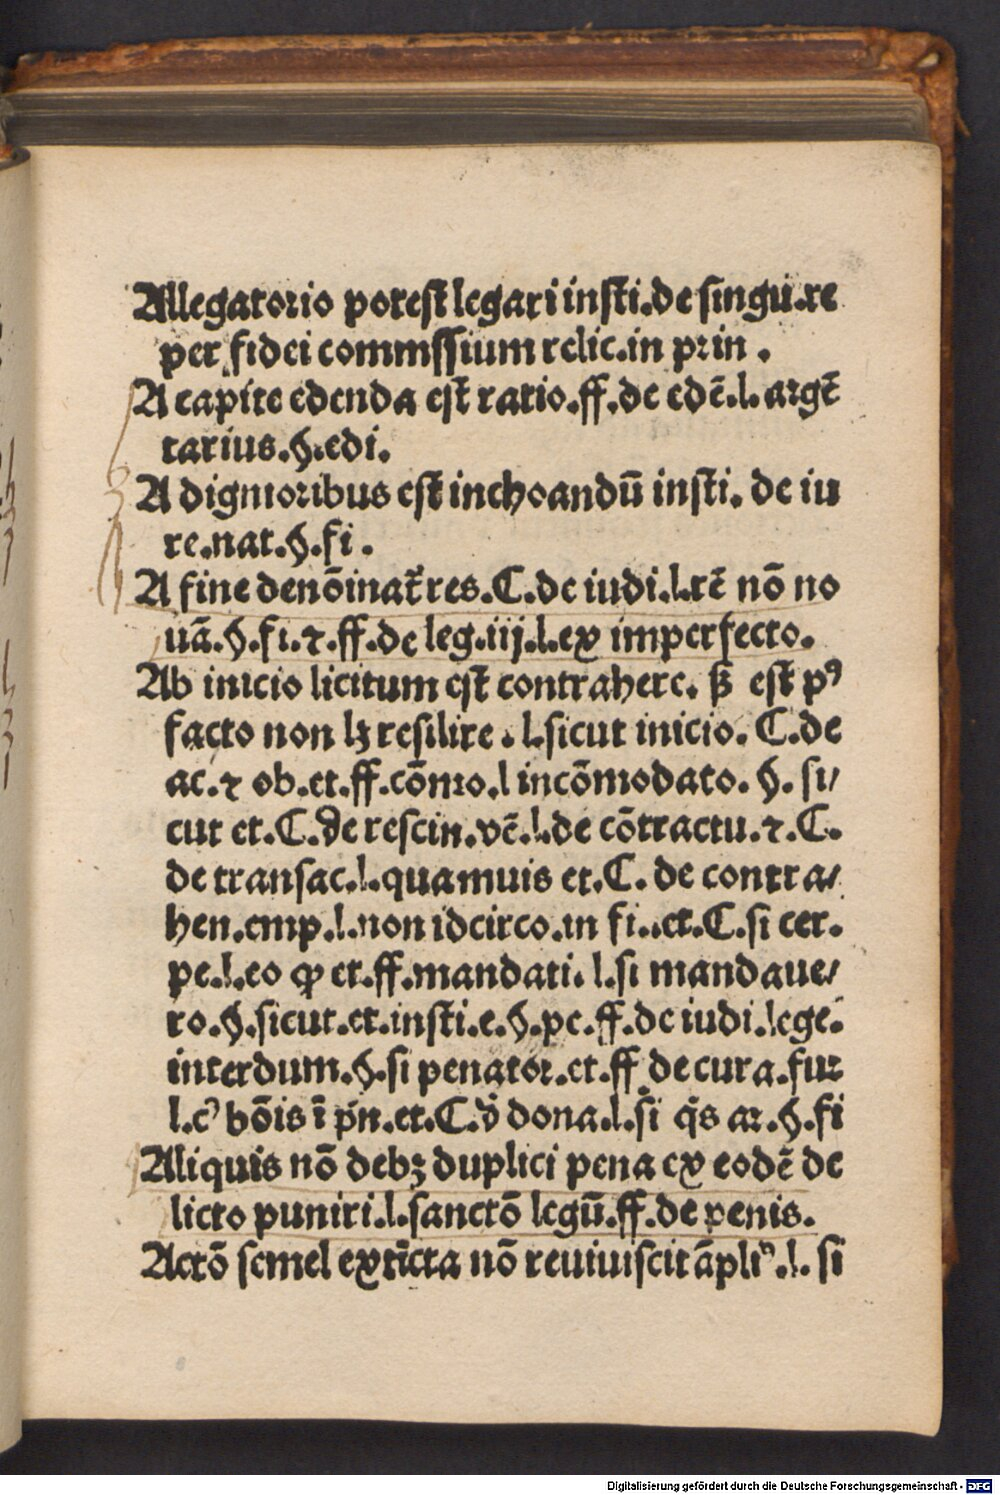 Allegatorio potest legari insti.de singu.re
per fidei commssium relic.in prin .
A capite edenda est ratio.ff.de edē.l. argē
tarius.§.edi.
A dignioribus est inchoandū insti. de iu
re.nat.§.fi .
A fine denōinat̄ res.C.de iudi.l.rē nō no
uā.§.fi.⁊.ff.de leg.iij.l.ex imperfecto.
Ab inicio licitum est contrahere. sꝫ est pꝰ
facto non lꝫ resilire . l.sicut inicio. C.de
ac.⁊ ob.et.ff.cōmo.l incōmodato. §. si/
cut et.C.de rescin.vē.l.de cōtractu.⁊.C.
de transac.l.quamuis et.C. de contra/
hen.emp.l.non idcirco.in fi..et.C.si cer.
pe.l.eo ꝙ et.ff.mandati. l.si mandaue/
ro.§.sicut.et.insti.e.§.pe.ff.de iudi.lege.
interdum.§.si penator.et.ff de cura.fur
l.cꝰ bōis ī pn̄.et.C.d̄ dona.l.si q̄s ar.§.fi
Aliquis nō debꝫ duplici pena ex eodē de
licto puniri.l.sanctō legū.ff.de penis.
Actō semel extīcta nō reuiuiscit āpliꝰ.l. si
Digitalisierung gefördert durch die Deutsche Forschungsgemeinschaft - DFG